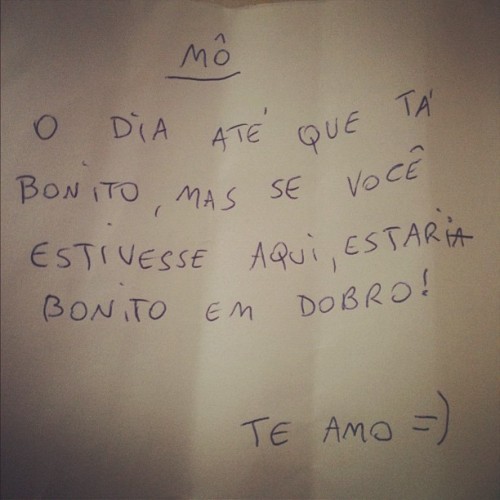 MÔ
O DIA ATÉ QUE TÁ
BONITO, MAS SE VOCÊ
ESTIVESSE AQUI, ESTARIA
BONITO EM DOBRO!
TE AMO =)